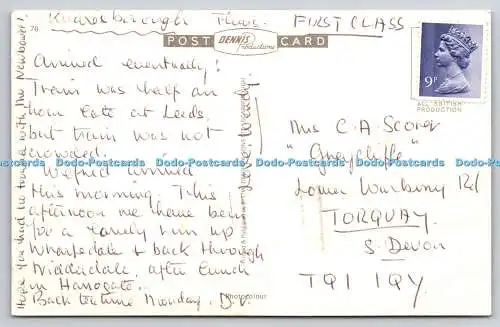 Knaresborough Thurs. FIRST CLASS
70
POST DENNIS CARD
Productions
9P
ALL BRITISH
PRODUCTION
Arrived eventually!
Train was half an
hour late at Leeds,
but train was not
crowded.
Wilfrid arrived
this morning. This
afternoon we have been
for a lovely run up
Wharfedale & back through
Nidderdale, after lunch
in Harrogate.
Back to time Monday, D.V.
Love Wendy
Hope you had no trouble with the Newbower!
Mrs C. A. Scorer
"Greycliffe"
Lower Warberry Rd
TORQUAY
S. Devon
TQ1 1QY
Photocolour
Dodo-Postcards Dodo-Postcards Dodo-Postcards Dodo-Postcards Dodo-Postcards